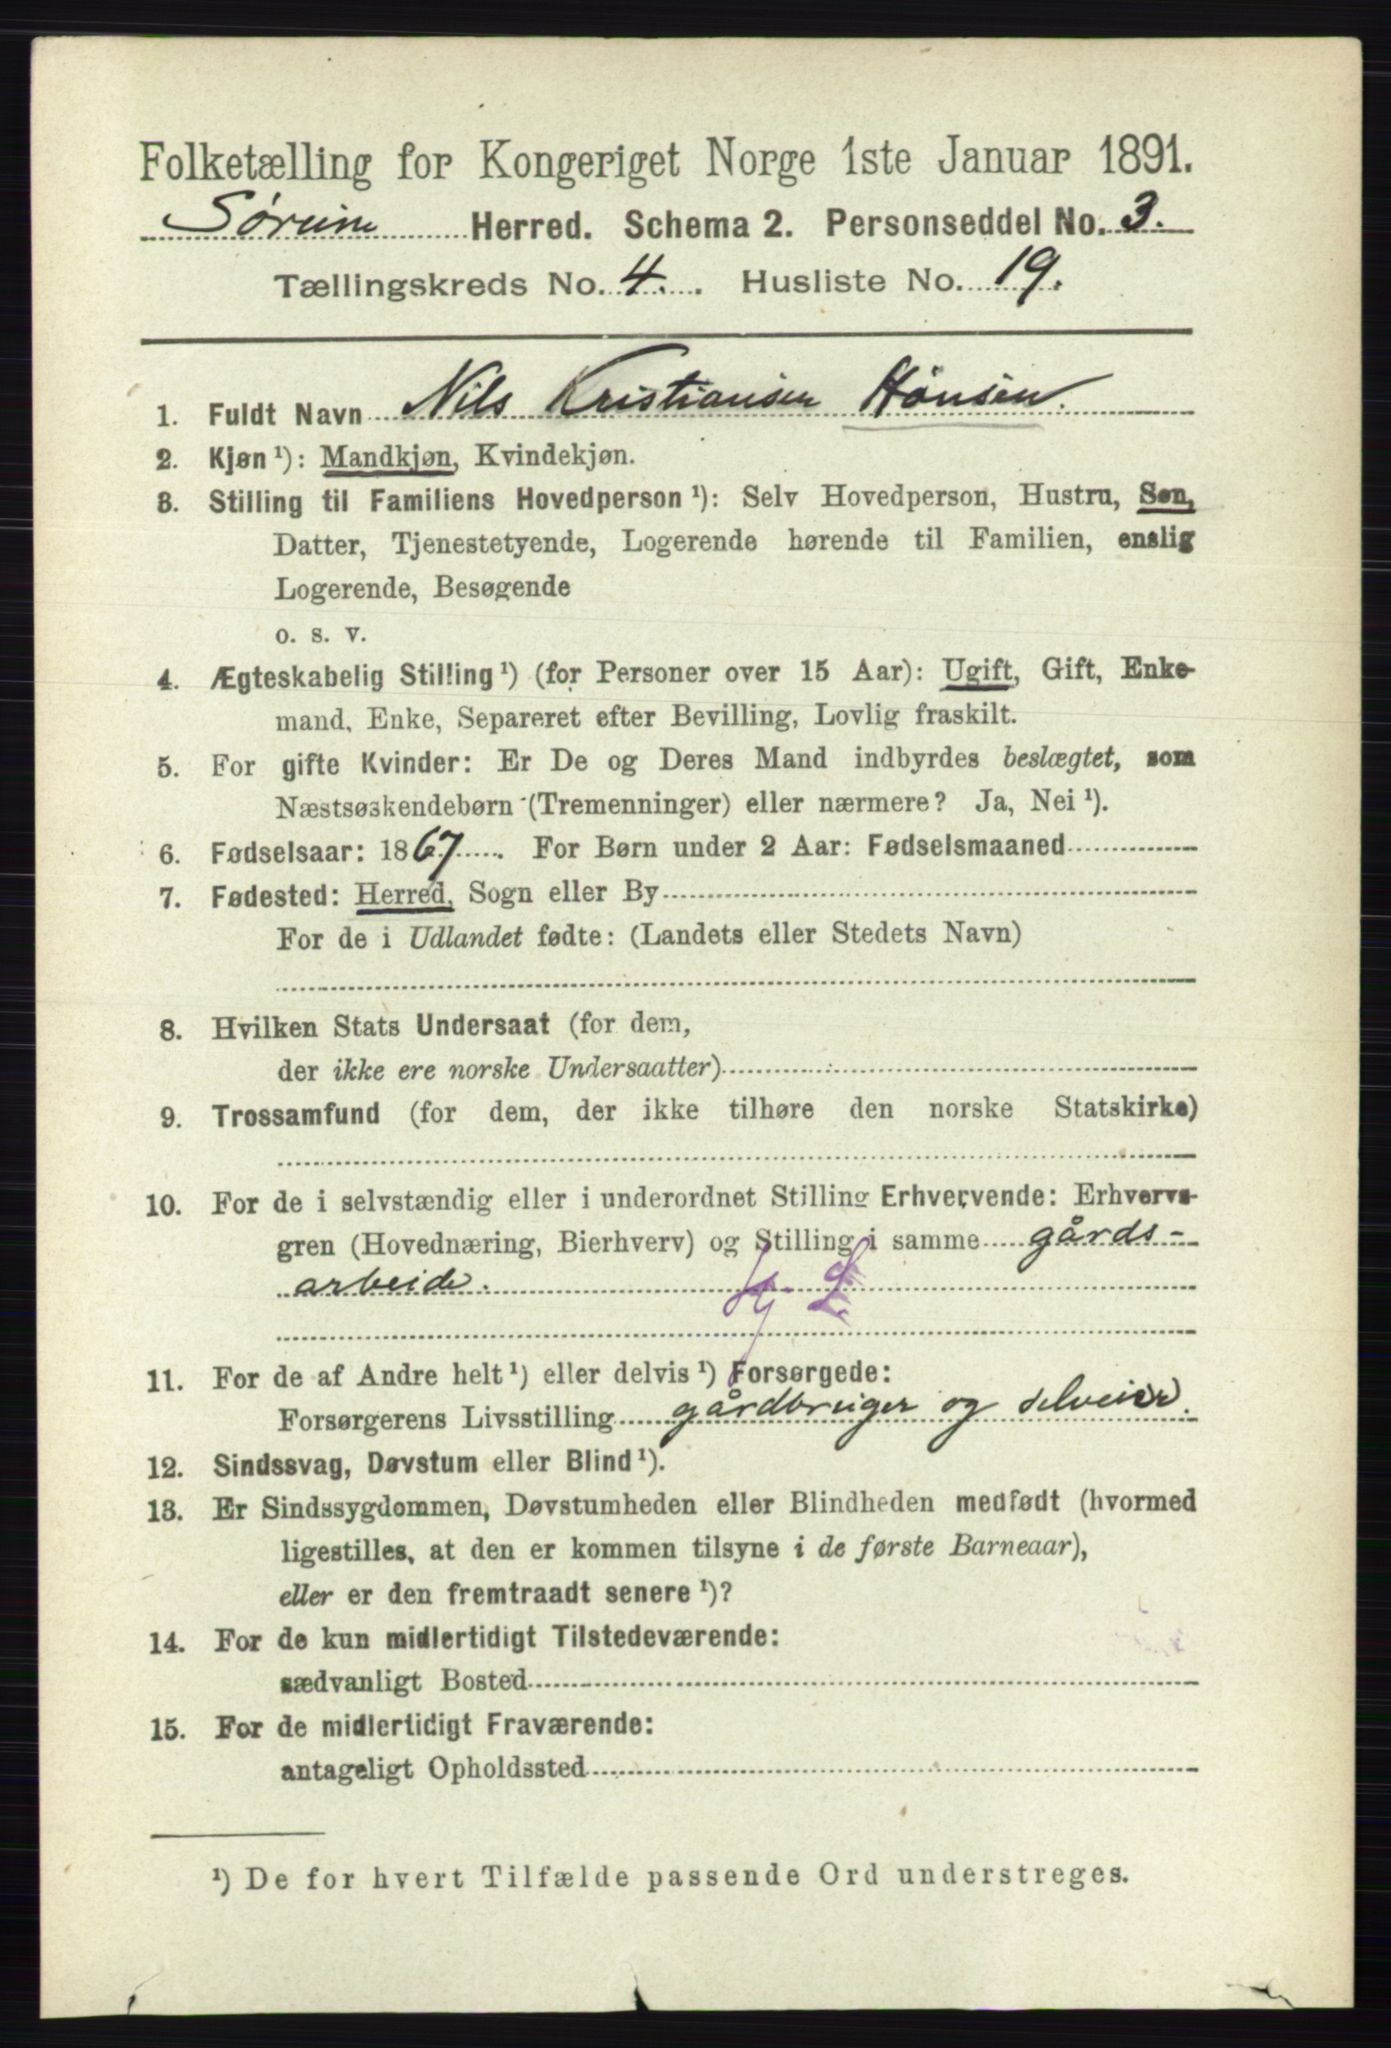 Folketælling for Kongeriget Norge 1ste Januar 1891.
Sørum Herred. Schema 2. Personseddel No. 3.
Tællingskreds No. 4. Husliste No. 19.
1. Fuldt Navn Nils Kristiansen Hönsen.
2. Kjøn ¹): Mandkjøn, Kvindekjøn.
3. Stilling til Familiens Hovedperson ¹): Selv Hovedperson, Hustru, Søn,
Datter, Tjenestetyende, Logerende hørende til Familien, enslig
Logerende, Besøgende
o. s. v.
4. Ægteskabelig Stilling ¹) (for Personer over 15 Aar): Ugift, Gift, Enke-
mand, Enke, Separeret efter Bevilling, Lovlig fraskilt.
5. For gifte Kvinder: Er De og Deres Mand indbyrdes beslægtet, som
Næstsøskendebørn (Tremenninger) eller nærmere? Ja, Nei ¹).
6. Fødselsaar: 1867. For Børn under 2 Aar: Fødselsmaaned
7. Fødested: Herred, Sogn eller By
For de i Udlandet fødte: (Landets eller Stedets Navn)
8. Hvilken Stats Undersaat (for dem,
der ikke ere norske Undersaatter)
9. Trossamfund (for dem, der ikke tilhøre den norske Statskirke)
10. For de i selvstændig eller i underordnet Stilling Erhvervende: Erhvervs-
gren (Hovednæring, Bierhverv) og Stilling i samme gårds-
arbeide.
11. For de af Andre helt ¹) eller delvis ¹) Forsørgede:
Forsørgerens Livsstilling gårdbruger og selveier.
12. Sindssvag, Døvstum eller Blind ¹).
13. Er Sindssygdommen, Døvstumheden eller Blindheden medfødt (hvormed
ligestilles, at den er kommen tilsyne i de første Barneaar),
eller er den fremtraadt senere ¹)?
14. For de kun midlertidigt Tilstedeværende:
sædvanligt Bosted
15. For de midlertidigt Fraværende:
antageligt Opholdssted
¹) De for hvert Tilfælde passende Ord understreges.